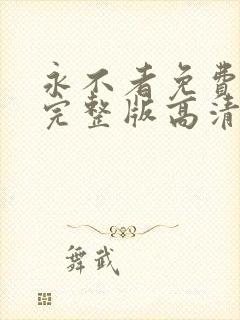 永不看免費
完整版高清
舞武